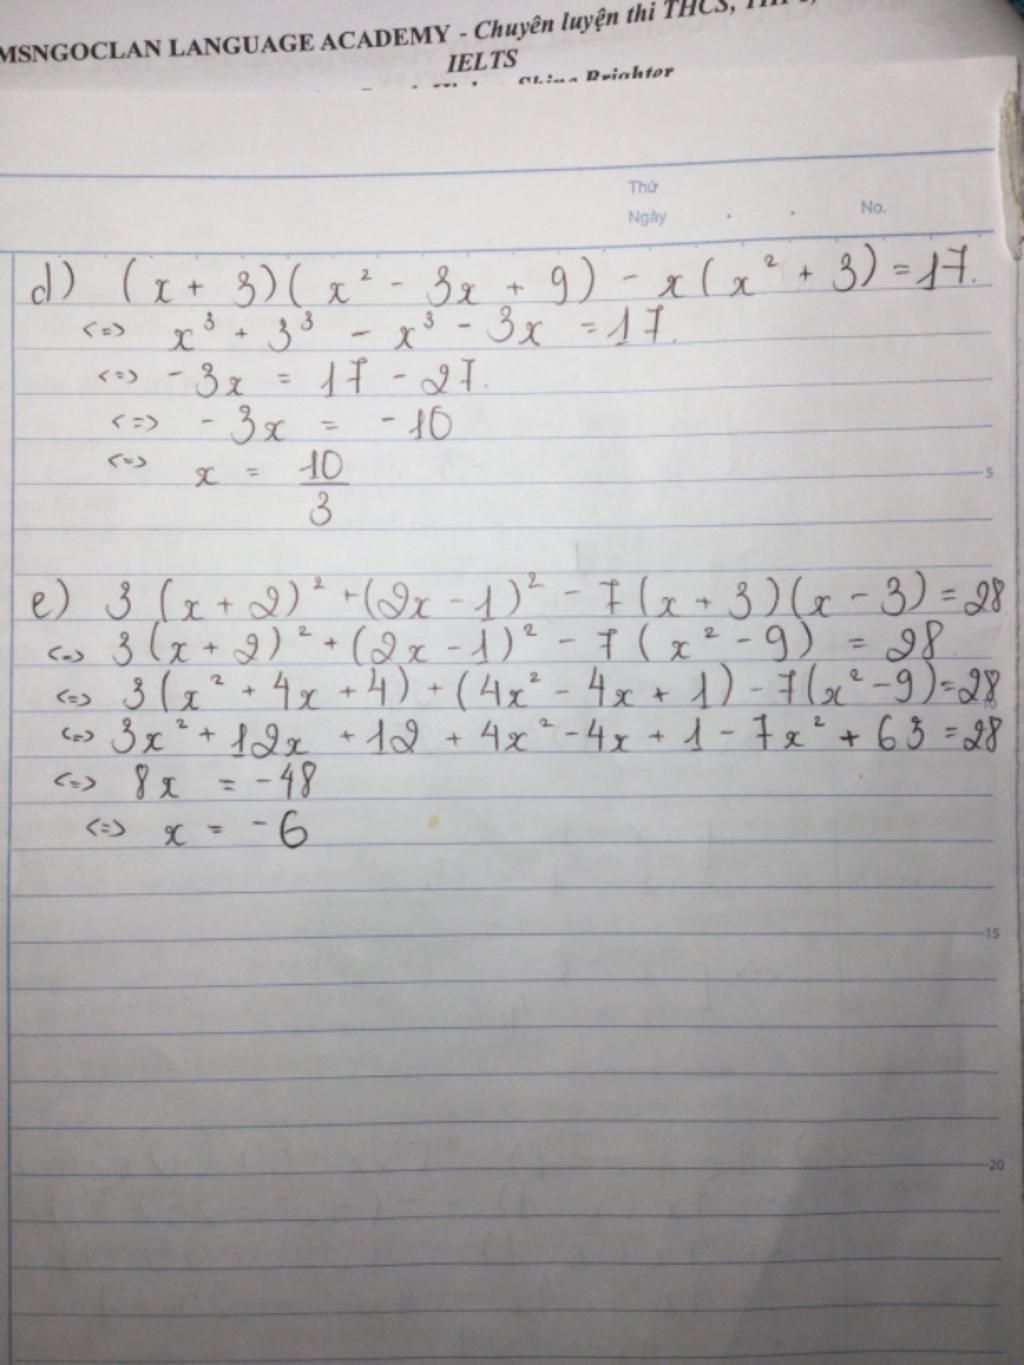 MSNGOCLAN LANGUAGE ACADEMY - Chuyên luyện thi THCS,
IELTS
Brighter
Thứ
Ngày . . No.
d) (x + 3)(x² - 3x + 9) - x(x² + 3) = 17.
<=> x³ + 3³ - x³ - 3x = 17.
<=> -3x = 17 - 27.
<=> -3x = -10
<=> x = 10/3
5
e) 3(x + 2)² + (2x - 1)² - 7(x + 3)(x - 3) = 28
<=> 3(x + 2)² + (2x - 1)² - 7(x² - 9) = 28
<=> 3(x² + 4x + 4) + (4x² - 4x + 1) - 7(x² - 9) = 28
<=> 3x² + 12x + 12 + 4x² - 4x + 1 - 7x² + 63 = 28
<=> 8x = -48
<=> x = -6
15
20